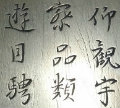 仰觀宇
察品類
遊目騁